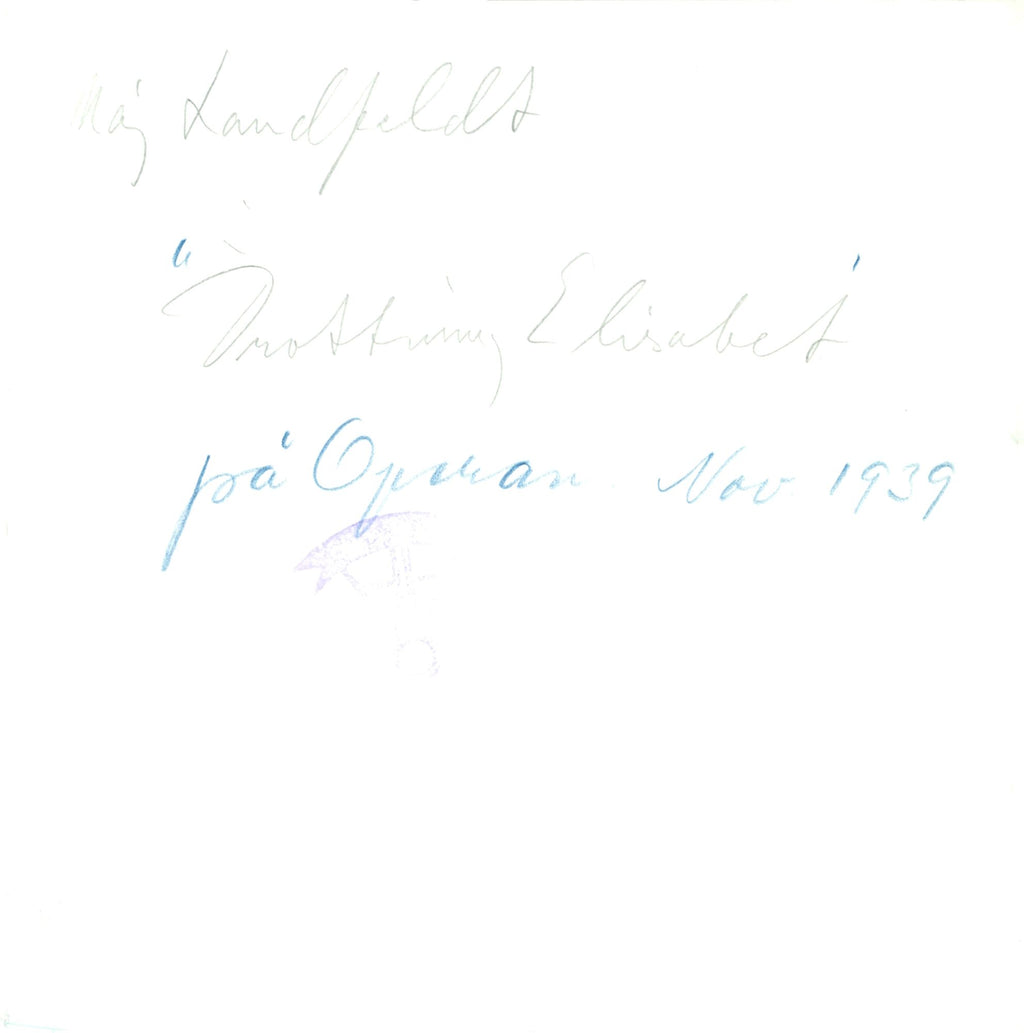 Maj Landfeldt
"Drottning Elisabet"
på Operan. Nov. 1939